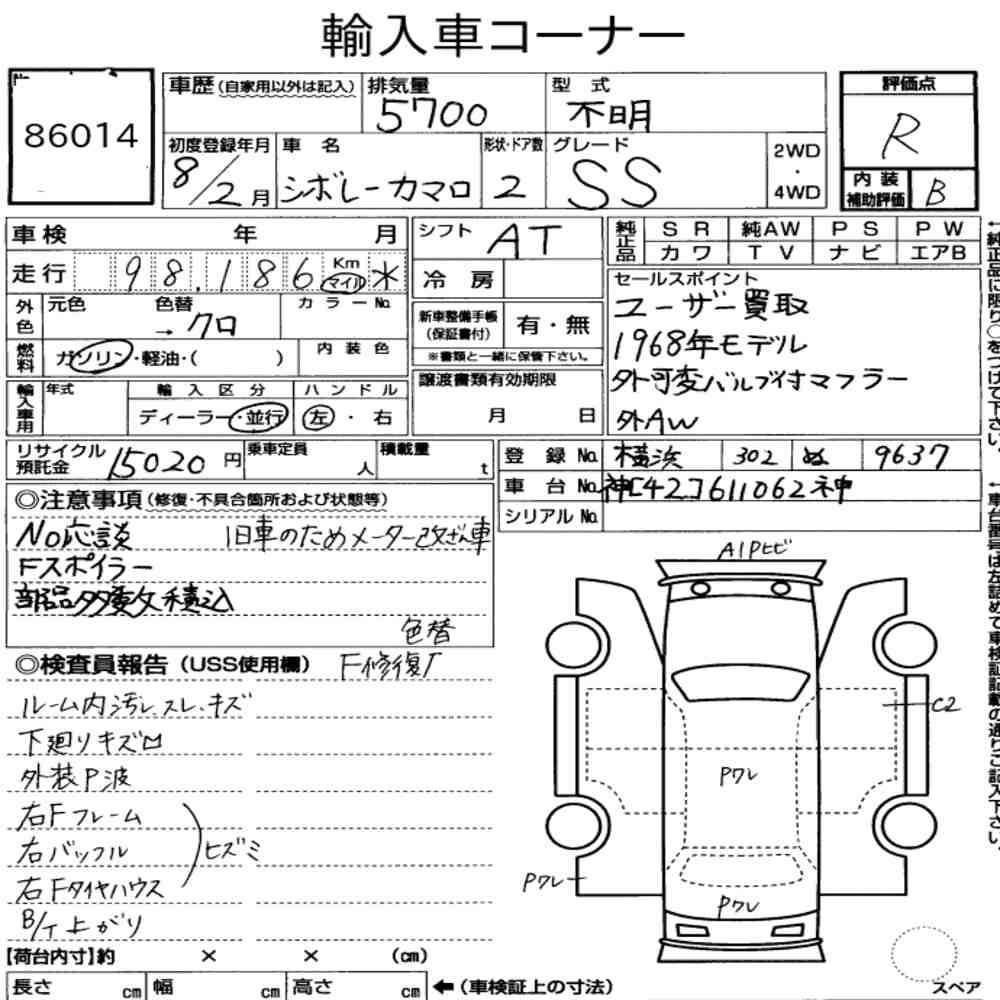 輸入車コーナー
No.
86014
車歴(自家用以外は記入) 排気量 5700 型式 不明
評価点 R
初度登録年月 8/2月 車名 シボレーカマロ 形状・ドア数 2 グレード SS 2WD・4WD
内装補助評価 B
車検 年 月 シフト AT
純正品 SR 純AW PS PW
カワ TV ナビ エアB
走行 98,186 Km マイル 冷房
セールスポイント
ユーザー買取
1968年モデル
外可変バルブ付マフラー
外AW
外色 元色 色替 → クロ カラーNo.
新車整備手帳(保証書付) 有・無
※書類と一緒に保管下さい。
燃料 ガソリン・軽油・( ) 内装色
輸入車用 年式 輸入区分 ディーラー・並行 ハンドル 左・右
譲渡書類有効期限 月 日
リサイクル預託金 15020円 乗車定員 人 積載量 t
登録No. 横浜 302 ぬ 9637
車台No. 神[42]コ611062神
シリアルNo.
◎注意事項(修復・不具合箇所および状態等)
No応談 旧車のためメーター改ざん車
Fスポイラー
部品多数欠積込
色替
◎検査員報告(USS使用欄) F修復歴
ルーム内汚レ、スレ、キズ
下廻りキズ凹
外装P波
右Fフレーム
右バッフル
右Fタイヤハウス
ヒズミ
B/T上がり
A1Pヒビ
C2
Pワレ
Pワレ
Pワレ
【荷台内寸】約 × × (cm)
長さ cm 幅 cm 高さ cm ←(車検証上の寸法)
スペア
←純正品に限り○をつけて下さい。
←車台番号は左詰めで車検証記載の通りご記入下さい。